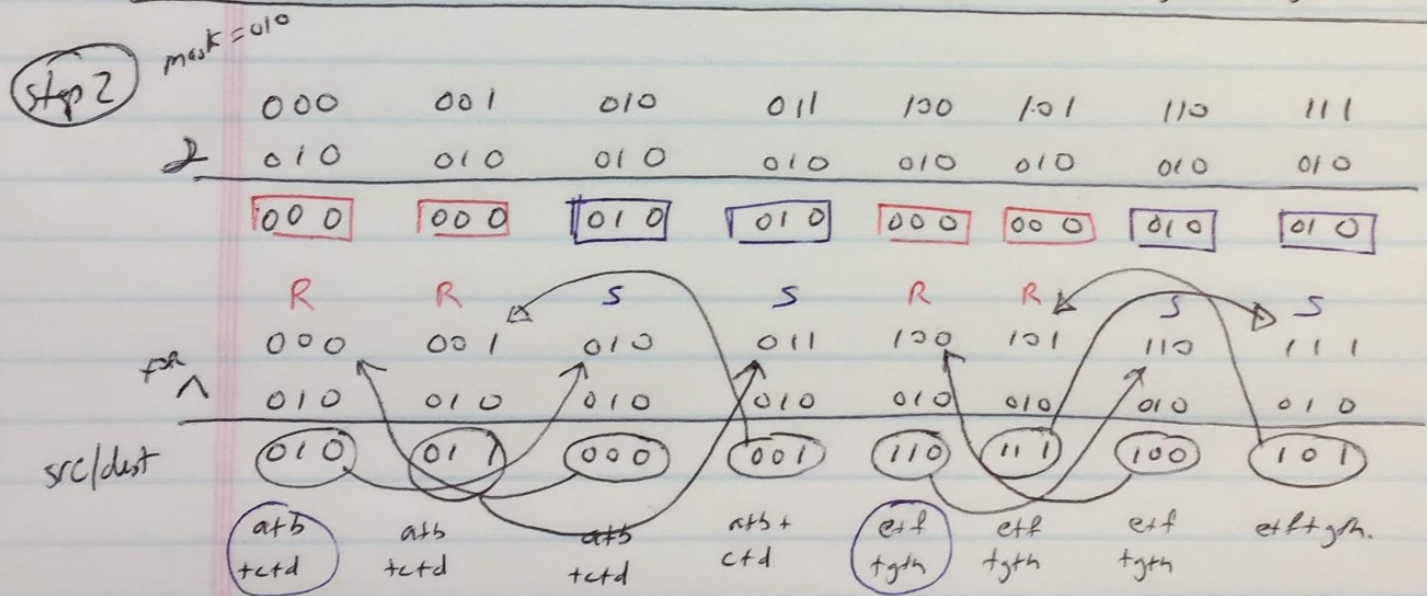 mask = 010
step 2
000 001 010 011 100 101 110 111
& 010 010 010 010 010 010 010 010
000 000 010 010 000 000 010 010
R R S S R R S S
000 001 010 011 100 101 110 111
^ 010 010 010 010 010 010 010 010
src/dest 010 011 000 001 110 111 100 101
a+b a+b a+b a+b + e+f e+f e+f e+f+g+h.
+c+d +c+d +c+d c+d +g+h +g+h +g+h